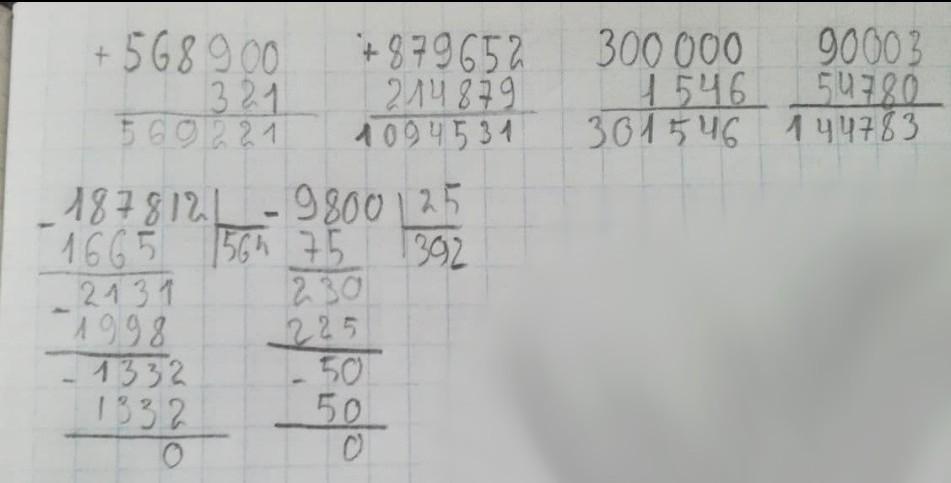 +568900 +879652 300000 90003
321 214879 1546 54780
569221 1094531 301546 144783
-187812 -9800 25
1665 564 75 392
-2131 230
1998 225
-1332 -50
1332 50
0 0